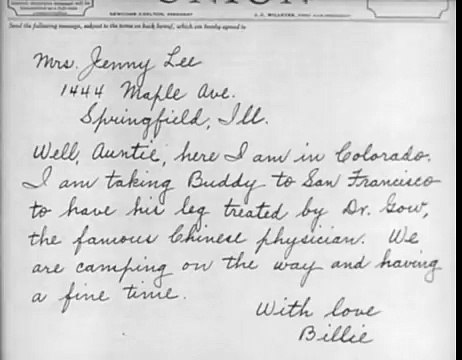 UNION
NEWCOMB CARLTON, PRESIDENT
Send the following message, subject to the terms on back hereof, which are hereby agreed to
Mrs. Jenny Lee
1444 Maple Ave.
Springfield, Ill.
Well, Auntie, here I am in Colorado.
I am taking Buddy to San Francisco
to have his leg treated by Dr. Gow,
the famous Chinese physician. We
are camping on the way and having
a fine time.
With love
Billie